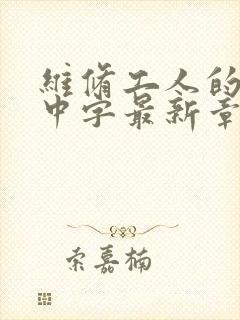 維脩工人的
中字最新章
索嘉楠